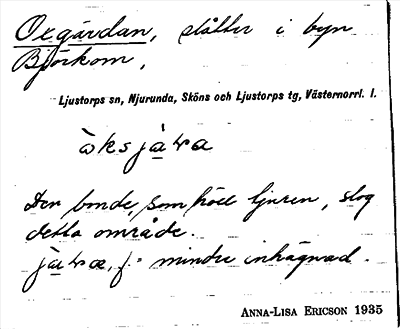 Oxgärdan, slåtter i byn
Björkom,
Ljustorps sn, Njurunda, Sköns och Ljustorps tg, Västernorrl. l.
Den bonde, som höll tjuren, slog
detta område.
f. = mindre inhägnad.
ANNA-LISA ERICSON 1935